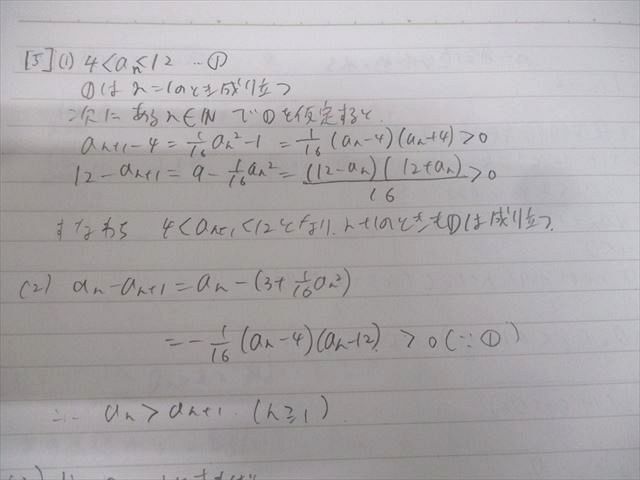 [5](1) 4<aₙ<12 …①
①はn=1のとき成り立つ
次に ある n∈ℕ で①を仮定すると.
aₙ₊₁-4=1/16 aₙ²-1 =1/16(aₙ-4)(aₙ+4)>0
12-aₙ₊₁=9-1/16 aₙ²=(12-aₙ)(12+aₙ)/16>0
すなわち 4<aₙ₊₁<12となり、n+1のときも①は成り立つ.
(2) aₙ-aₙ₊₁=aₙ-(3+1/16 aₙ²)
=-1/16(aₙ-4)(aₙ-12) >0(∵①)
∴ aₙ>aₙ₊₁.(n≧1)